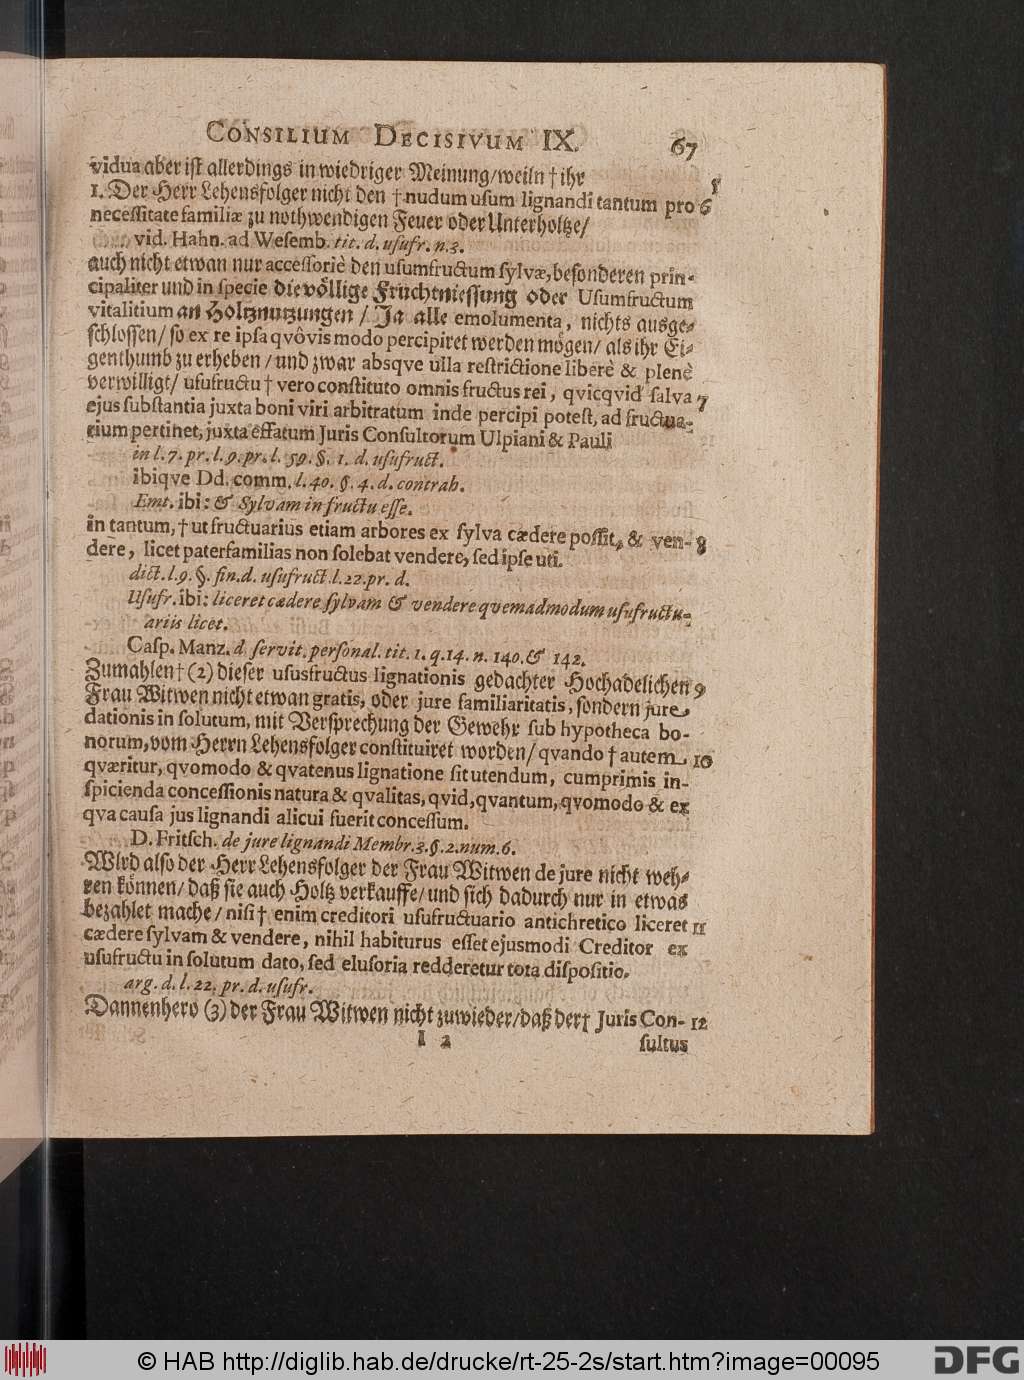 CONSILIUM DECISIVUM IX. 67
vidua aber ist allerdings in wiedriger Meinung/ weiln † ihr
1. Der Herr Lehensfolger nicht den † nudum usum lignandi tantum pro 6
necessitate familiæ zu nothwendigen Feuer oder Unterholtze/
vid. Hahn. ad Wesemb. tit. d. usufr. n. 3.
auch nicht etwan nur accessoriè den usumfructum sylvæ, besonderen prin-
cipaliter und in specie die völlige Fruchtniessung oder Usumfructum
vitalitium an Holtznutzungen / Ja alle emolumenta, nichts ausge-
schlossen/ so ex re ipsa qvôvis modo percipiret werden mögen/ als ihr Ei-
genthumb zu erheben / und zwar absqve ulla restrictione liberè & plenè
verwilligt/ usufructu † vero constituto omnis fructus rei, qvicqvid salva 7
ejus substantia juxta boni viri arbitratum inde percipi potest, ad fructua-
rium pertinet, juxta effatum Juris Consultorum Ulpiani & Pauli
in l. 7. pr. l. 9. pr. l. 59. §. 1. d. usufruct.
ibiqve Dd. comm. l. 40. §. 4. d. contrah.
Emt. ibi: & Sylvam in fructu esse.
in tantum, † ut fructuarius etiam arbores ex sylva cædere possit, & ven- 8
dere, licet paterfamilias non solebat vendere, sed ipse uti.
dict. l. 9. §. fin. d. usufruct. l. 22. pr. d.
Usufr. ibi: liceret cædere sylvam & vendere quemadmodum usufructu-
ariis licet.
Casp. Manz. d servit. personal. tit. 1. q. 14. n. 140. & 142.
Zumahlen † (2) dieser ususfructus lignationis gedachter Hochadelichen 9
Frau Witwen nicht etwan gratis, oder jure familiaritatis, sondern jure
dationis in solutum, mit Versprechung der Gewehr sub hypotheca bo-
norum, vom Herrn Lehensfolger constituiret worden/ qvando † autem 10
qværitur, qvomodo & qvatenus lignatione sit utendum, cumprimis in-
spicienda concessionis natura & qvalitas, qvid, qvantum, qvomodo & ex
qva causa jus lignandi alicui fuerit concessum.
D. Fritsch. de jure lignandi Membr. 3. §. 2. num. 6.
Wird also der Herr Lehensfolger der Frau Witwen de jure nicht weh-
ren können/ daß sie auch Holtz verkauffe/ und sich dadurch nur in etwas
bezahlet mache/ nisi † enim creditori usufructuario antichretico liceret 11
cædere sylvam & vendere, nihil habiturus esset ejusmodi Creditor ex
usufructu in solutum dato, sed elusoria redderetur tota dispositio.
arg. d. l. 22. pr. d. usufr.
Dannenhero (3) der Frau Witwen nicht zuwieder/ daß der † Juris Con- 12
I 2 sultus
© HAB http://diglib.hab.de/drucke/rt-25-2s/start.htm?image=00095 DFG